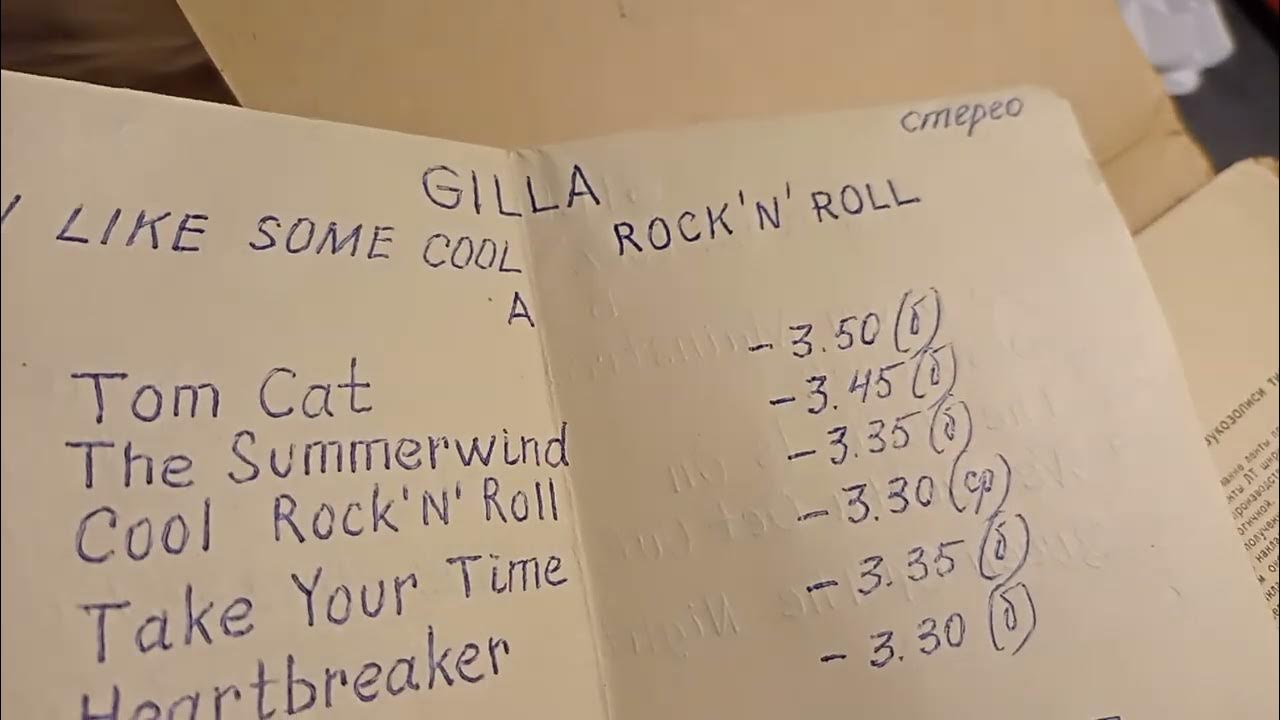 стерео
GILLA
I LIKE SOME COOL ROCK'N'ROLL
A
Tom Cat - 3.50 (б)
The Summerwind - 3.45 (б)
Cool Rock'N'Roll - 3.35 (б)
Take Your Time - 3.30 (ср)
Heartbreaker - 3.35 (б)
- 3.30 (б)